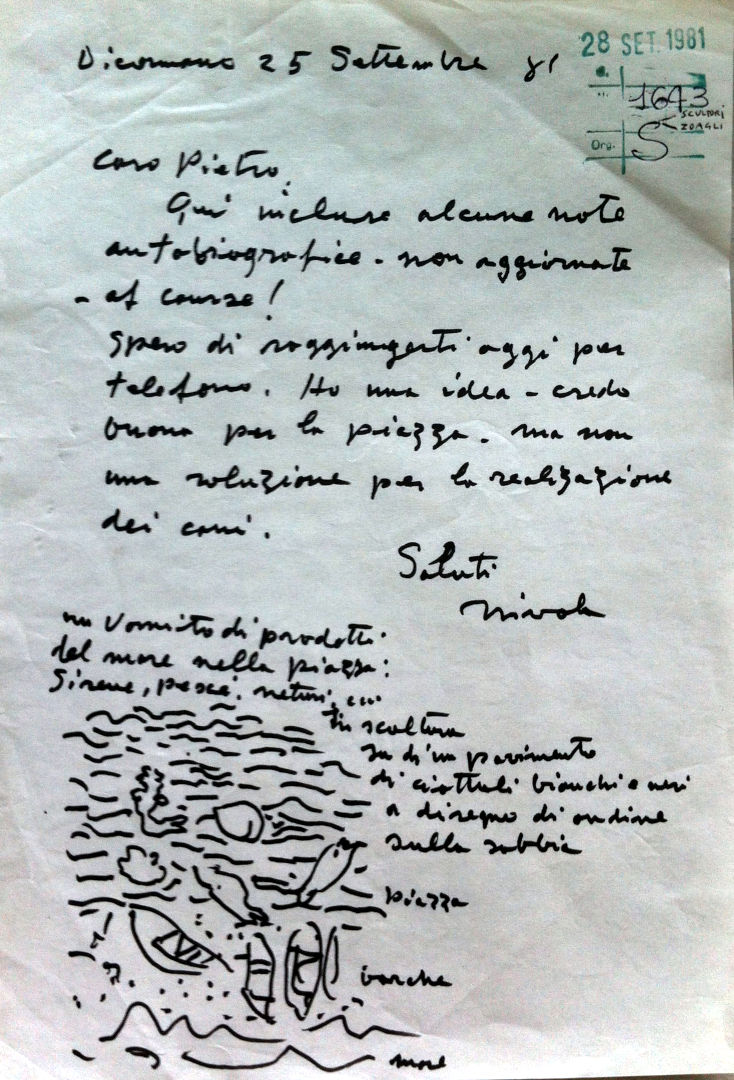 Dicomano 25 Settembre 81
28 SET. 1981
1643
SCULTORI
ZOAGLI
Org. S
Caro Pietro,
Qui incluse alcune note
autobiografice - non aggiornate
- of course!
Spero di raggiungerti oggi per
telefono. Ho una idea - credo
buona per la piazza. ma non
una soluzione per la realizazione
dei
Saluti
Nivola
un Vomito di prodotti
del mare nella piazza:
Sirene, pesci,
in scoltura
su di un pavimento
di ciottuli bianchi e neri
a disegno di ondine
sulla sabbia
piazza
barche
mare